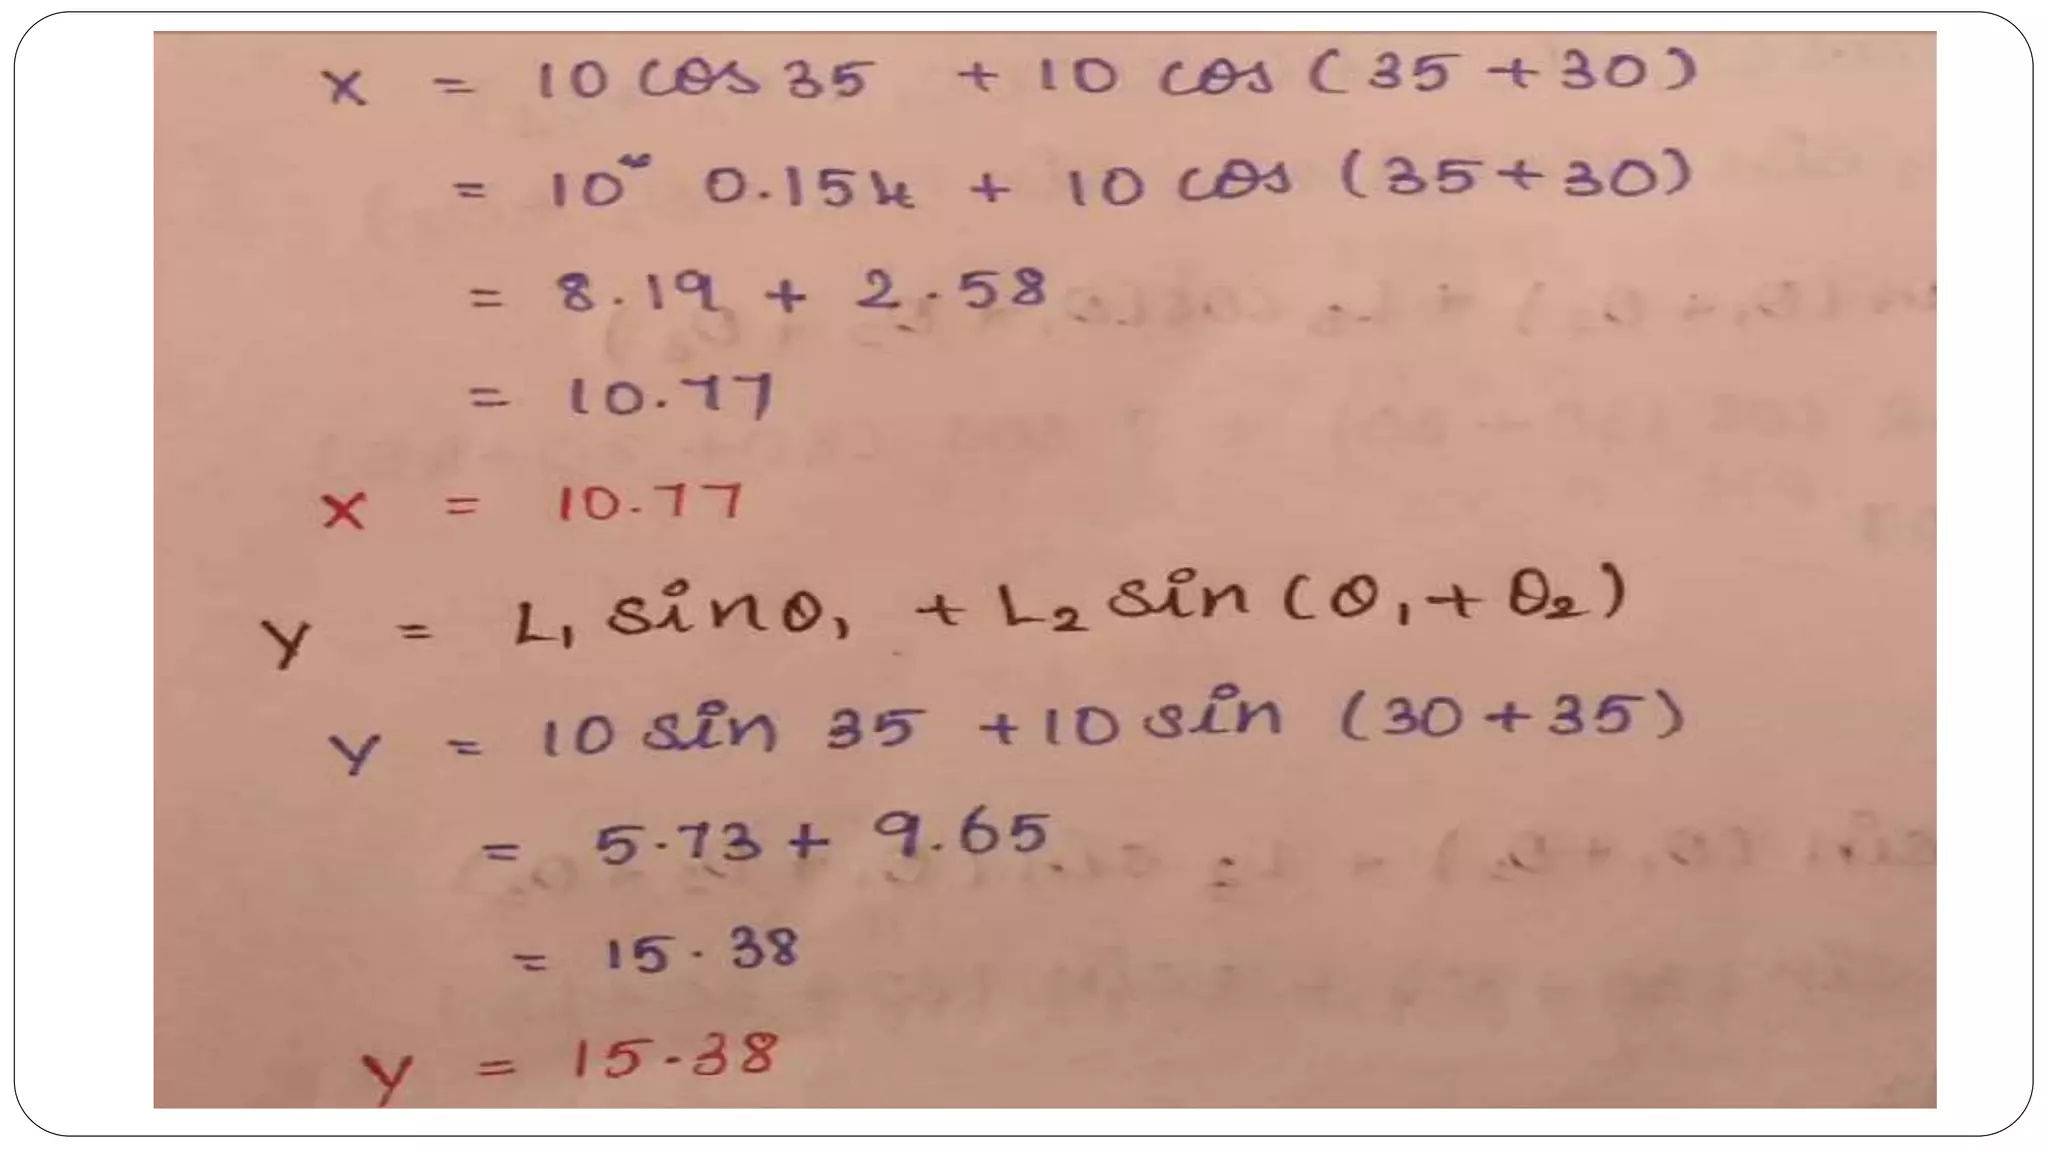 x = 10 cos 35 + 10 cos (35 + 30)
= 10 0.154 + 10 cos (35 + 30)
= 8.19 + 2.58
= 10.77
x = 10.77
y = L₁ sin θ₁ + L₂ sin (θ₁ + θ₂)
y = 10 sin 35 + 10 sin (30 + 35)
= 5.73 + 9.65
= 15.38
y = 15.38